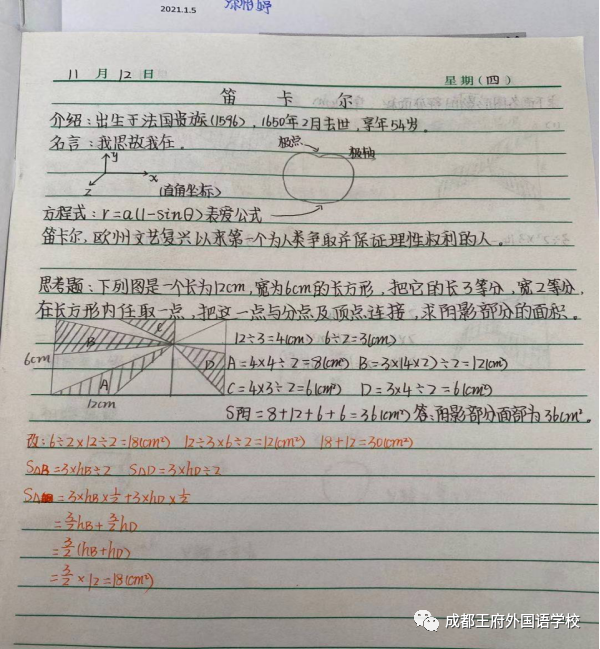 2021.1.5
11月12日 星期(四)
笛卡尔
介绍:出生于法国贵族(1596),1650年2月去世,享年54岁。
名言:我思故我在.
极点 极轴
y
x
z
(直角坐标)
方程式:r=a(1-sinθ)表爱公式
笛卡尔,欧州文艺复兴以来第一个为人类争取并保证理性权利的人。
思考题:下列图是一个长为12cm,宽为6cm的长方形,把它的长3等分,宽2等分,
在长方形内任取一点,把这一点与分点及顶点连接,求阴影部分的面积。
C
B
D
A
6cm
12cm
12÷3=4(cm) 6÷2=3(cm)
A=4×4÷2=8(cm²) B=3×(4×2)÷2=12(cm²)
C=4×3÷2=6(cm²) D=3×4÷2=6(cm²)
S阴=8+12+6+6=36(cm²) 答:阴影部分面部为36cm².
改:6÷2×12÷2=18(cm²) 12÷3×6÷2=12(cm²) 18+12=30(cm²)
S△B=3×hB÷2 S△D=3×hD÷2
=3×hB×1/2+3×hD×1/2
=3/2hB+3/2hD
=3/2(hB+hD)
=3/2×12=18(cm²)
成都王府外国语学校